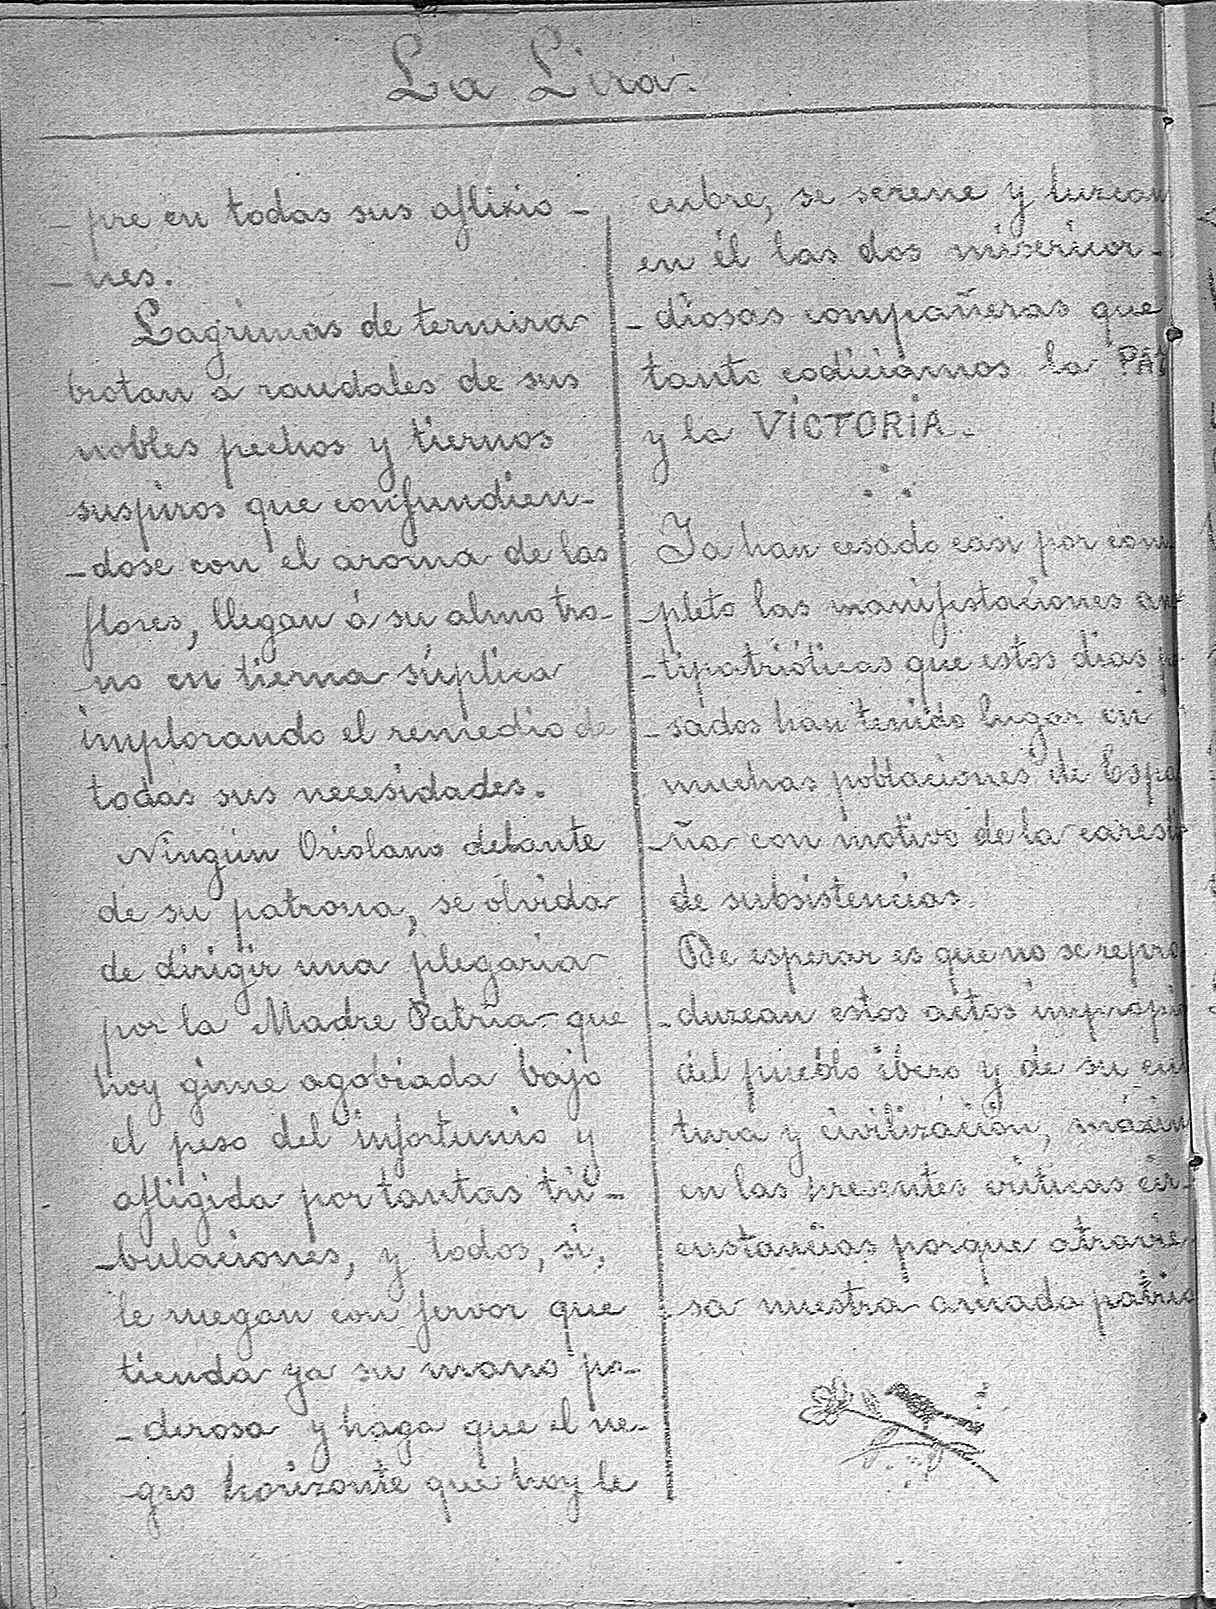 La Lira.
- pre en todas sus aflixio -
- nes.
Lagrimas de ternura
brotan á raudales de sus
nobles pechos y tiernos
suspiros que confundien-
-dose con el aroma de las
flores, llegan á su almo tro-
no en tierna súplica
implorando el remedio de
todas sus necesidades.
Ningún Oriolano delante
de su patrona, se olvida
de dirigir una plegaria
por la Madre Patria que
hoy gime agobiada bajo
el peso del infortunio y
afligida por tantas tri-
-bulaciones, y todos, si,
le ruegan con fervor que
tienda ya su mano po-
- derosa y haga que el ne-
-gro horizonte que hoy le
cubre, se serene y luzcan
en él las dos misericor-
- diosas compañeras que
tanto codiciamos la
y la VICTORIA.
Ya han cesado casi por com
-pleto las manifestaciones an
-tipatrióticas que estos dias p
- sados han tenido lugar en
muchas poblaciones de Espa
-ña con motivo de la caresti
de subsistencias.
De esperar es que no se repro
-duzcan estos actos impropio
del pueblo ibero y de su cul
tura y civilización, máxim
en las presentes criticas cir-
custancias porque atravie
sa nuestra amada patria